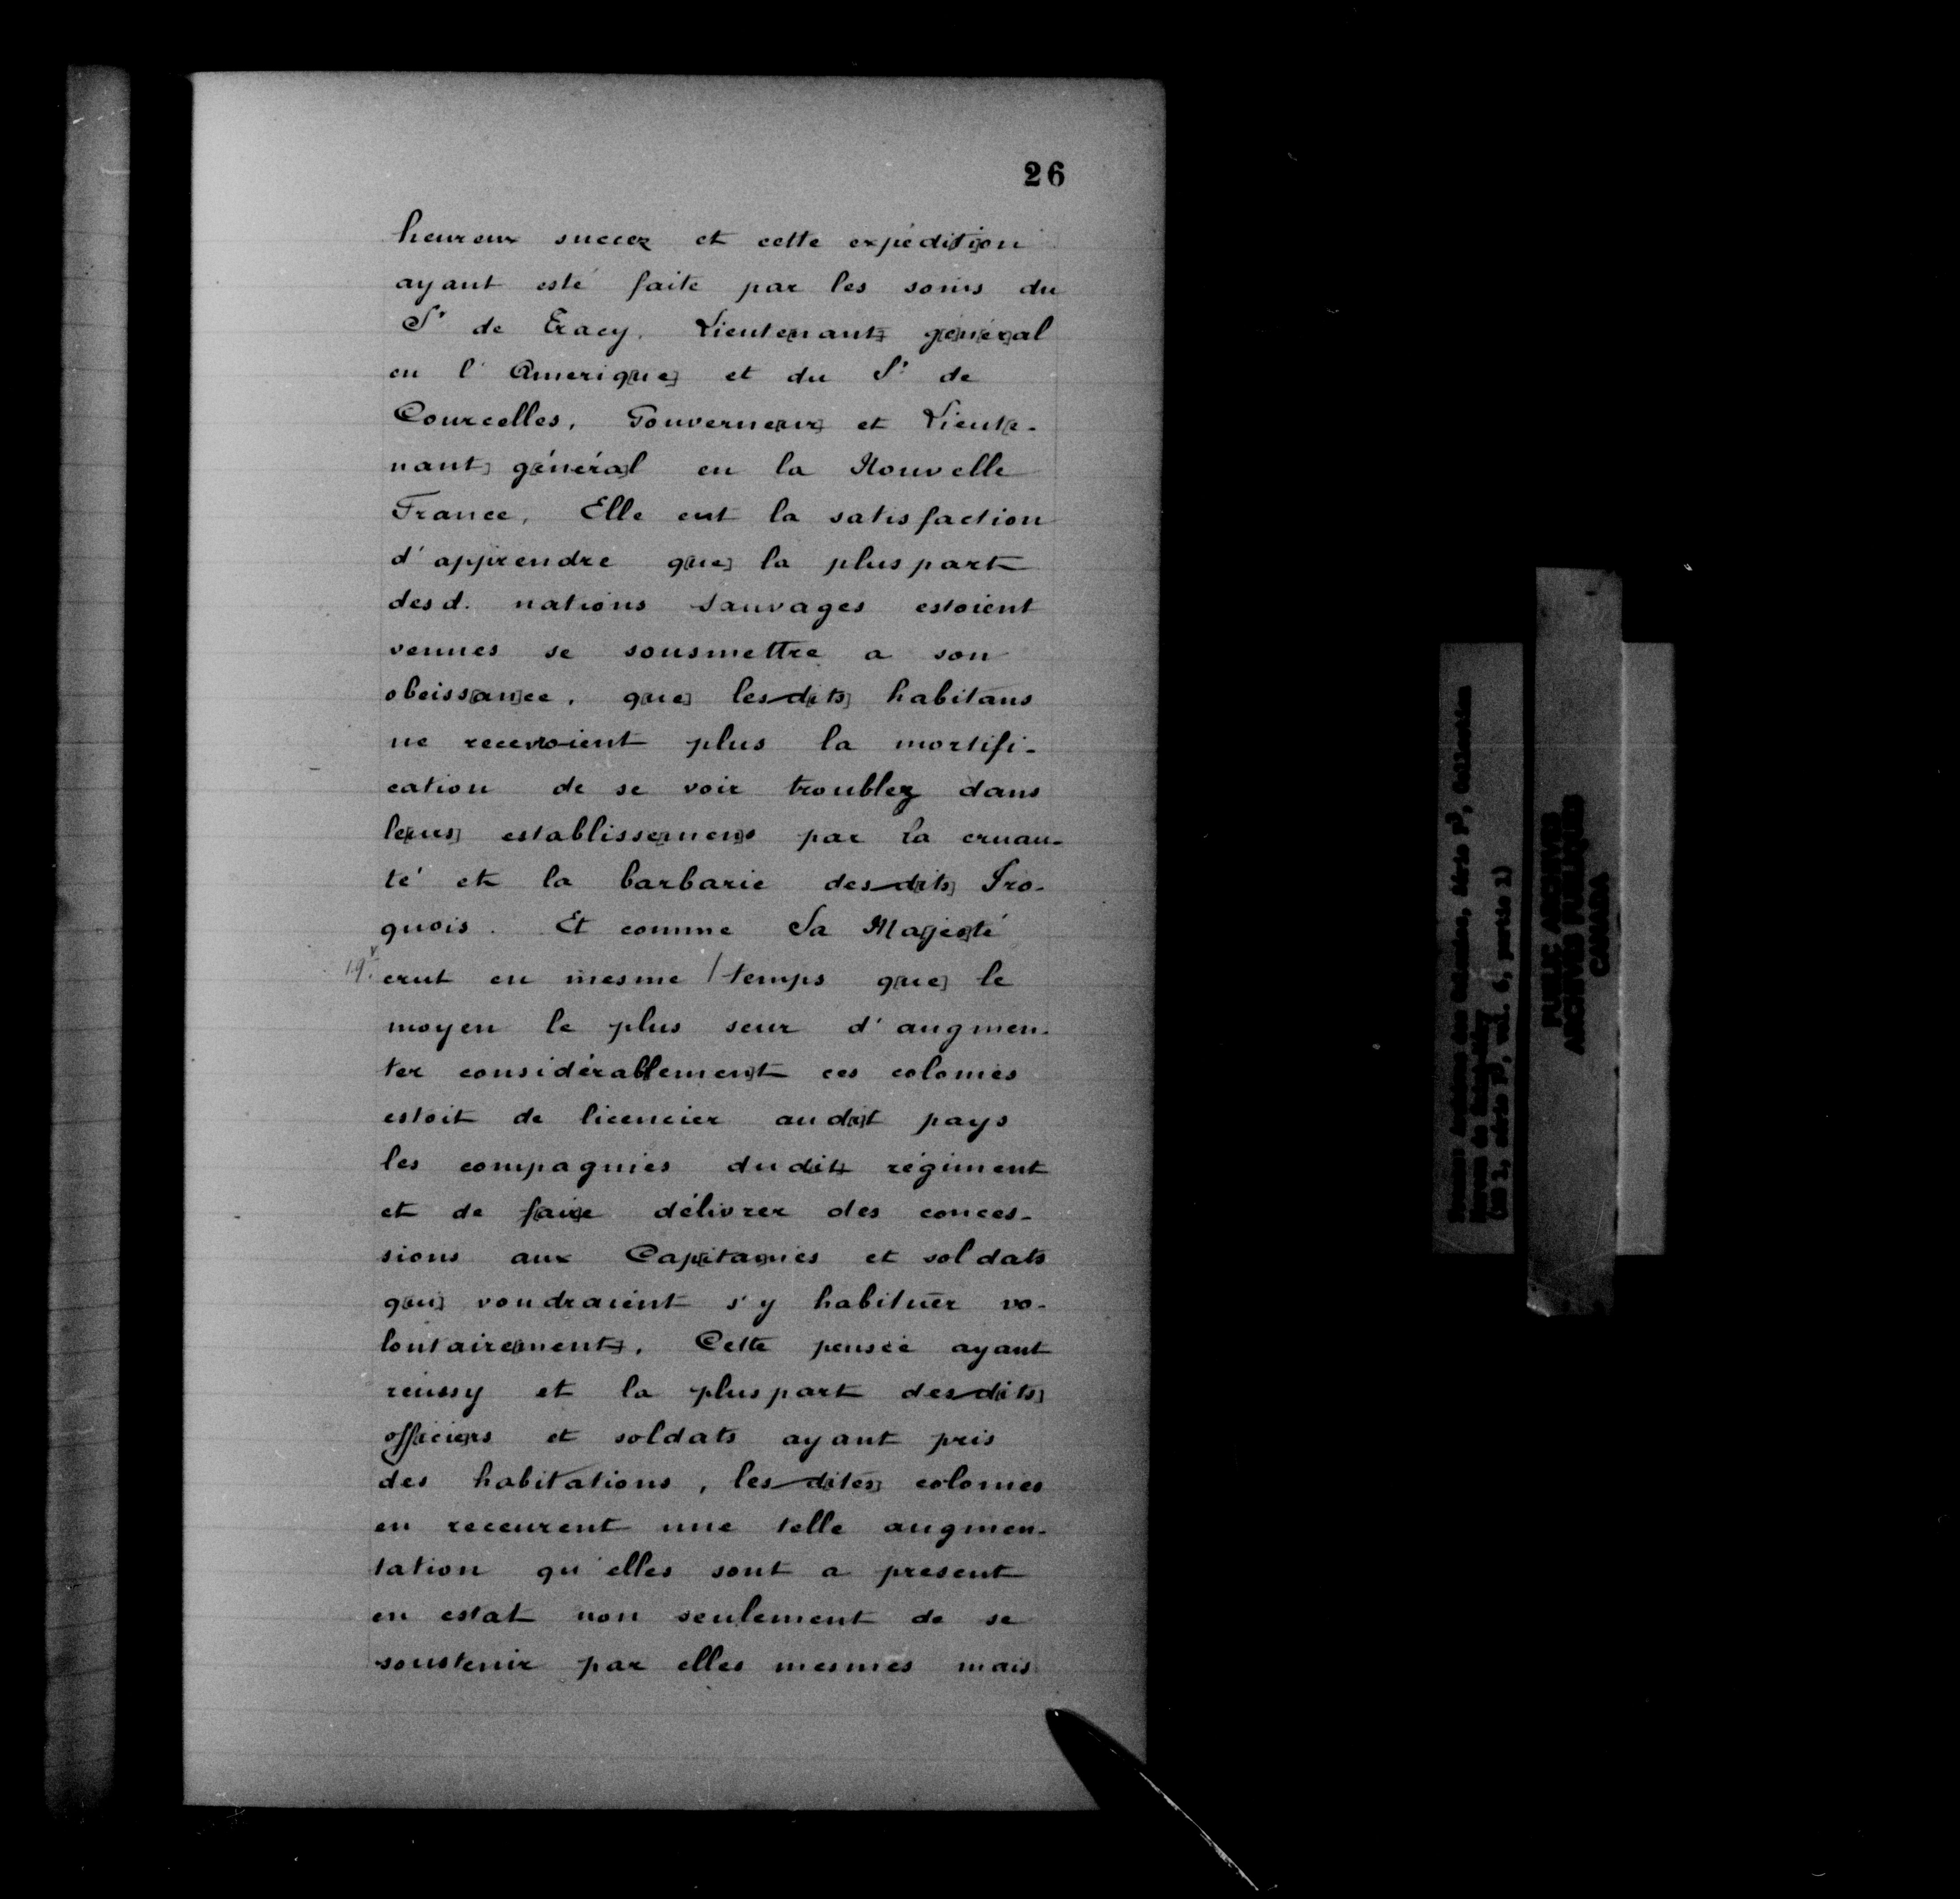 26
heureux succez et cette expédit[i]on
ayant esté faite par les soins du
Sr de Tracy, Lieute[nant] g[é]n[ér]al
en l'Ameriq[ue] et du Sr de
Courcelles, Gouverne[ur] et Lieut[e]-
nant] g[énéra]l en la Nouvelle
France, Elle eut la satisfaction
d'apprendre q[ue] la pluspart
desd. nations sauvages estoient
venues se sousmettre a son
obeiss[an]ce, q[ue] lesd[its] habitans
ne recevroient plus la mortifi-
cation de se voir troublez dans
le[urs] establisse[men]s par la cruau-
té et la barbarie desd[its] Iro-
quois. Et comme Sa Ma[jes]té
19v. crut en mesme / temps q[ue] le
moyen le plus seur d'augmen-
ter considérablemen[t] ces colonies
estoit de licencier aud[i]t pays
les compagnies dud[it] régiment
et de f[air]e délivrer des conces-
sions aux Cap[itai]nes et soldats
q[ui] voudraient s'y habituer vo-
lontaire[ment]. Cette pensée ayant
reussy et la pluspart desd[its]
off[icie]rs et soldats ayant pris
des habitations, lesd[ites] colonies
en receurent une telle augmen-
tation qu'elles sont a present
en estat non seulement de se
soustenir par elles mesmes mais
PUBLIC ARCHIVES
ARCHIVES PUBLIQUES
CANADA
Archives des Colonies, Série F3, Collection
Moreau de
(MG 1, série F3, vol. 6, partie 1)